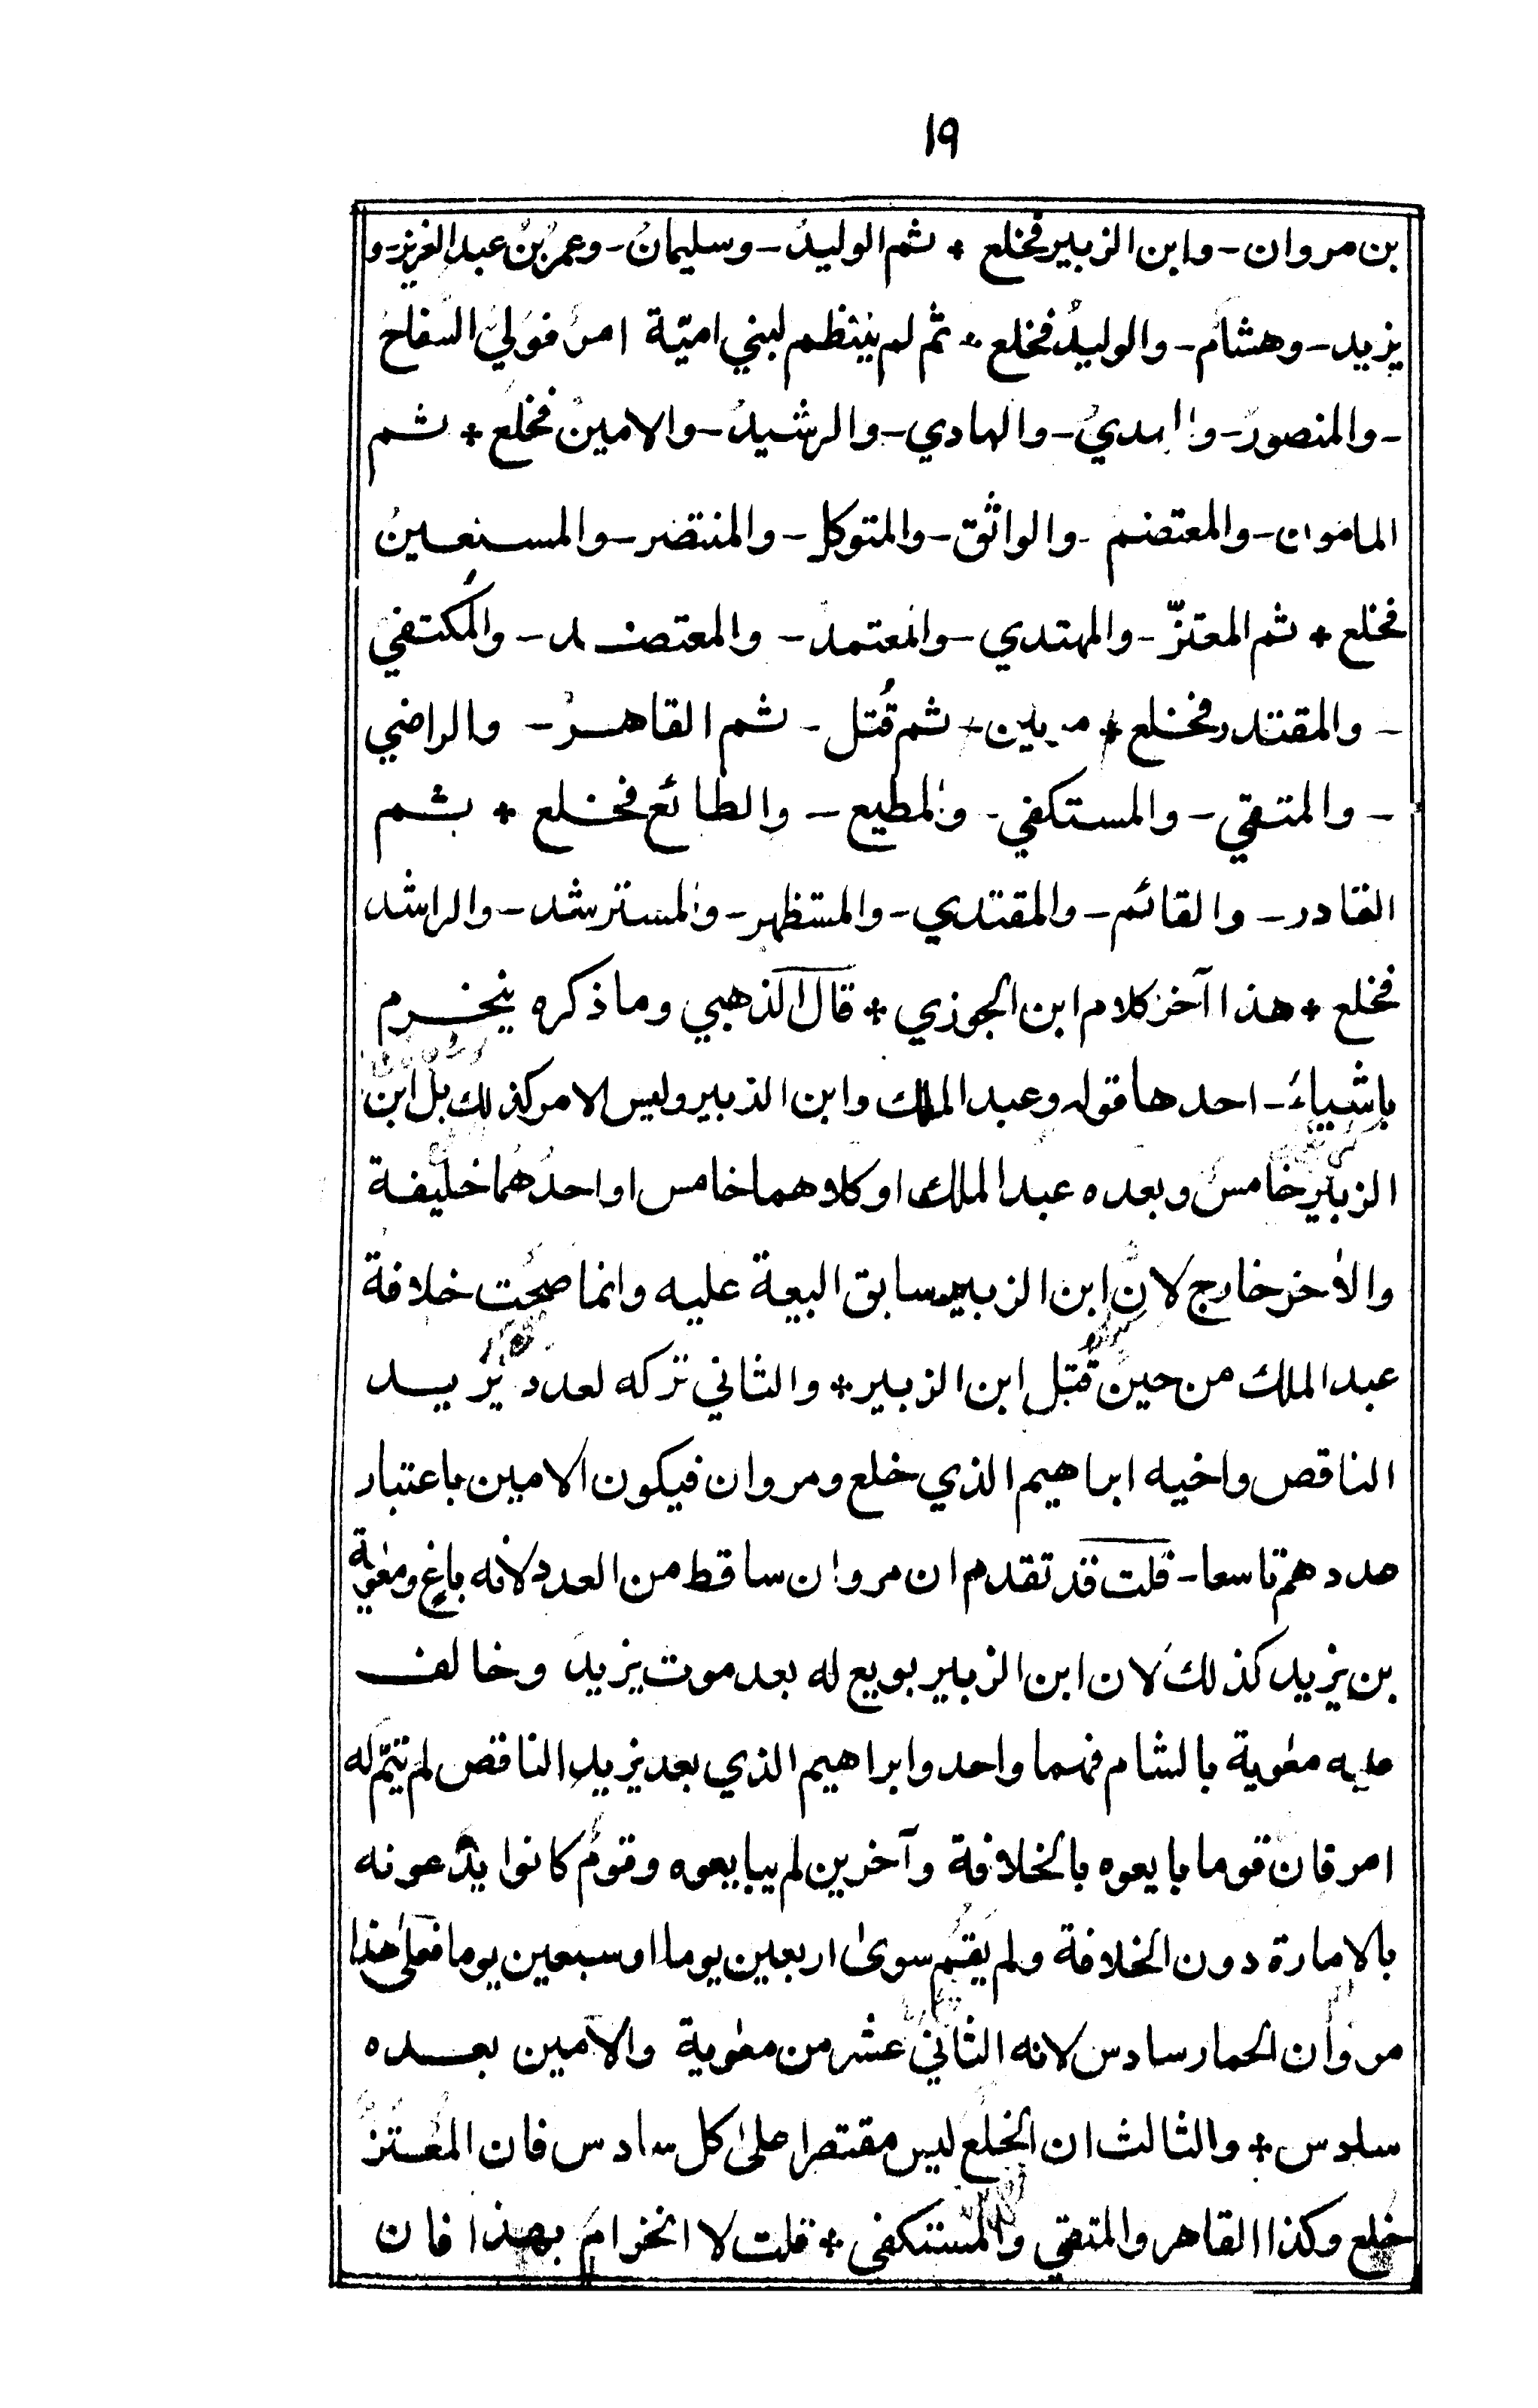 ١٩
بن مروان - وابن الزبير فخلع * ثم الوليدُ - وسليمانُ - وعمرُ بنُ عبد العزيز - و
يزيد - وهشامُ - والوليدُ فخلع * ثم لم ينتظم لبني اميّة امرٌ فوَلي السفاحُ
- والمنصورُ - والمهديُ - والهادي - والرشيدُ - والامينُ فخلع * ثم
المامون - والمعتصم - والواثق - والمتوكل - والمنتصر - والمستعينُ
فخلع * ثم المعتزّ - والمهتدي - والمعتمد - والمعتضد - والمُكتفي
- والمقتدر فخلع * مرتين * ثم قُتل - ثم القاهرُ - والراضي
- والمتقي - والمستكفي - والمطيع - والطائع فخلع * ثم
القادر - والقائم - والمقتدي - والمستظهر - والمسترشد - والراشد
فخلع * هذا آخر كلام ابن الجوزي * قال الذهبي وما ذكره ينخرم
باشياءَ - احدها قوله وعبد الملك وابن الزبير وليس الامر كذلك بل ابن
الزبير خامسٌ وبعده عبد الملك او كلاهما خامس او احدُهُما خليفة
والآخر خارج لانّ ابن الزبير سابق البيعة عليه وانما صحّت خلافة
عبد الملك من حين قُتل ابن الزبير * والثاني تركه لعدد يزيد
الناقص واخيه ابراهيم الذي خلع ومروان فيكون الامين باعتبار
عددهم تاسعا - قلت قد تقدم ان مروان ساقط من العدد لانه باغٍ ومعٰوية
بن يزيد كذلك لان ابن الزبير بويع له بعد موت يزيد وخالف
عليه معٰوية بالشام فهما واحد وابراهيم الذي بعد يزيد الناقص لم يتمّ له
امر فان قوما بايعوه بالخلافة وآخرين لم يبايعوه وقومٌ كانوا يدعونه
بالامارة دون الخلافة ولم يقُم سوى اربعين يوما او سبعين يوما فعلى هذا
مروان الحمار سادس لانه الثاني عشر من معٰوية والامين بعده
سادس * والثالث ان الخلع ليس مقتصرا على كل سادس فان المعتزّ
خلع وكذا القاهر والمتقي والمستكفي * قلت لا انخرام بهذا فان